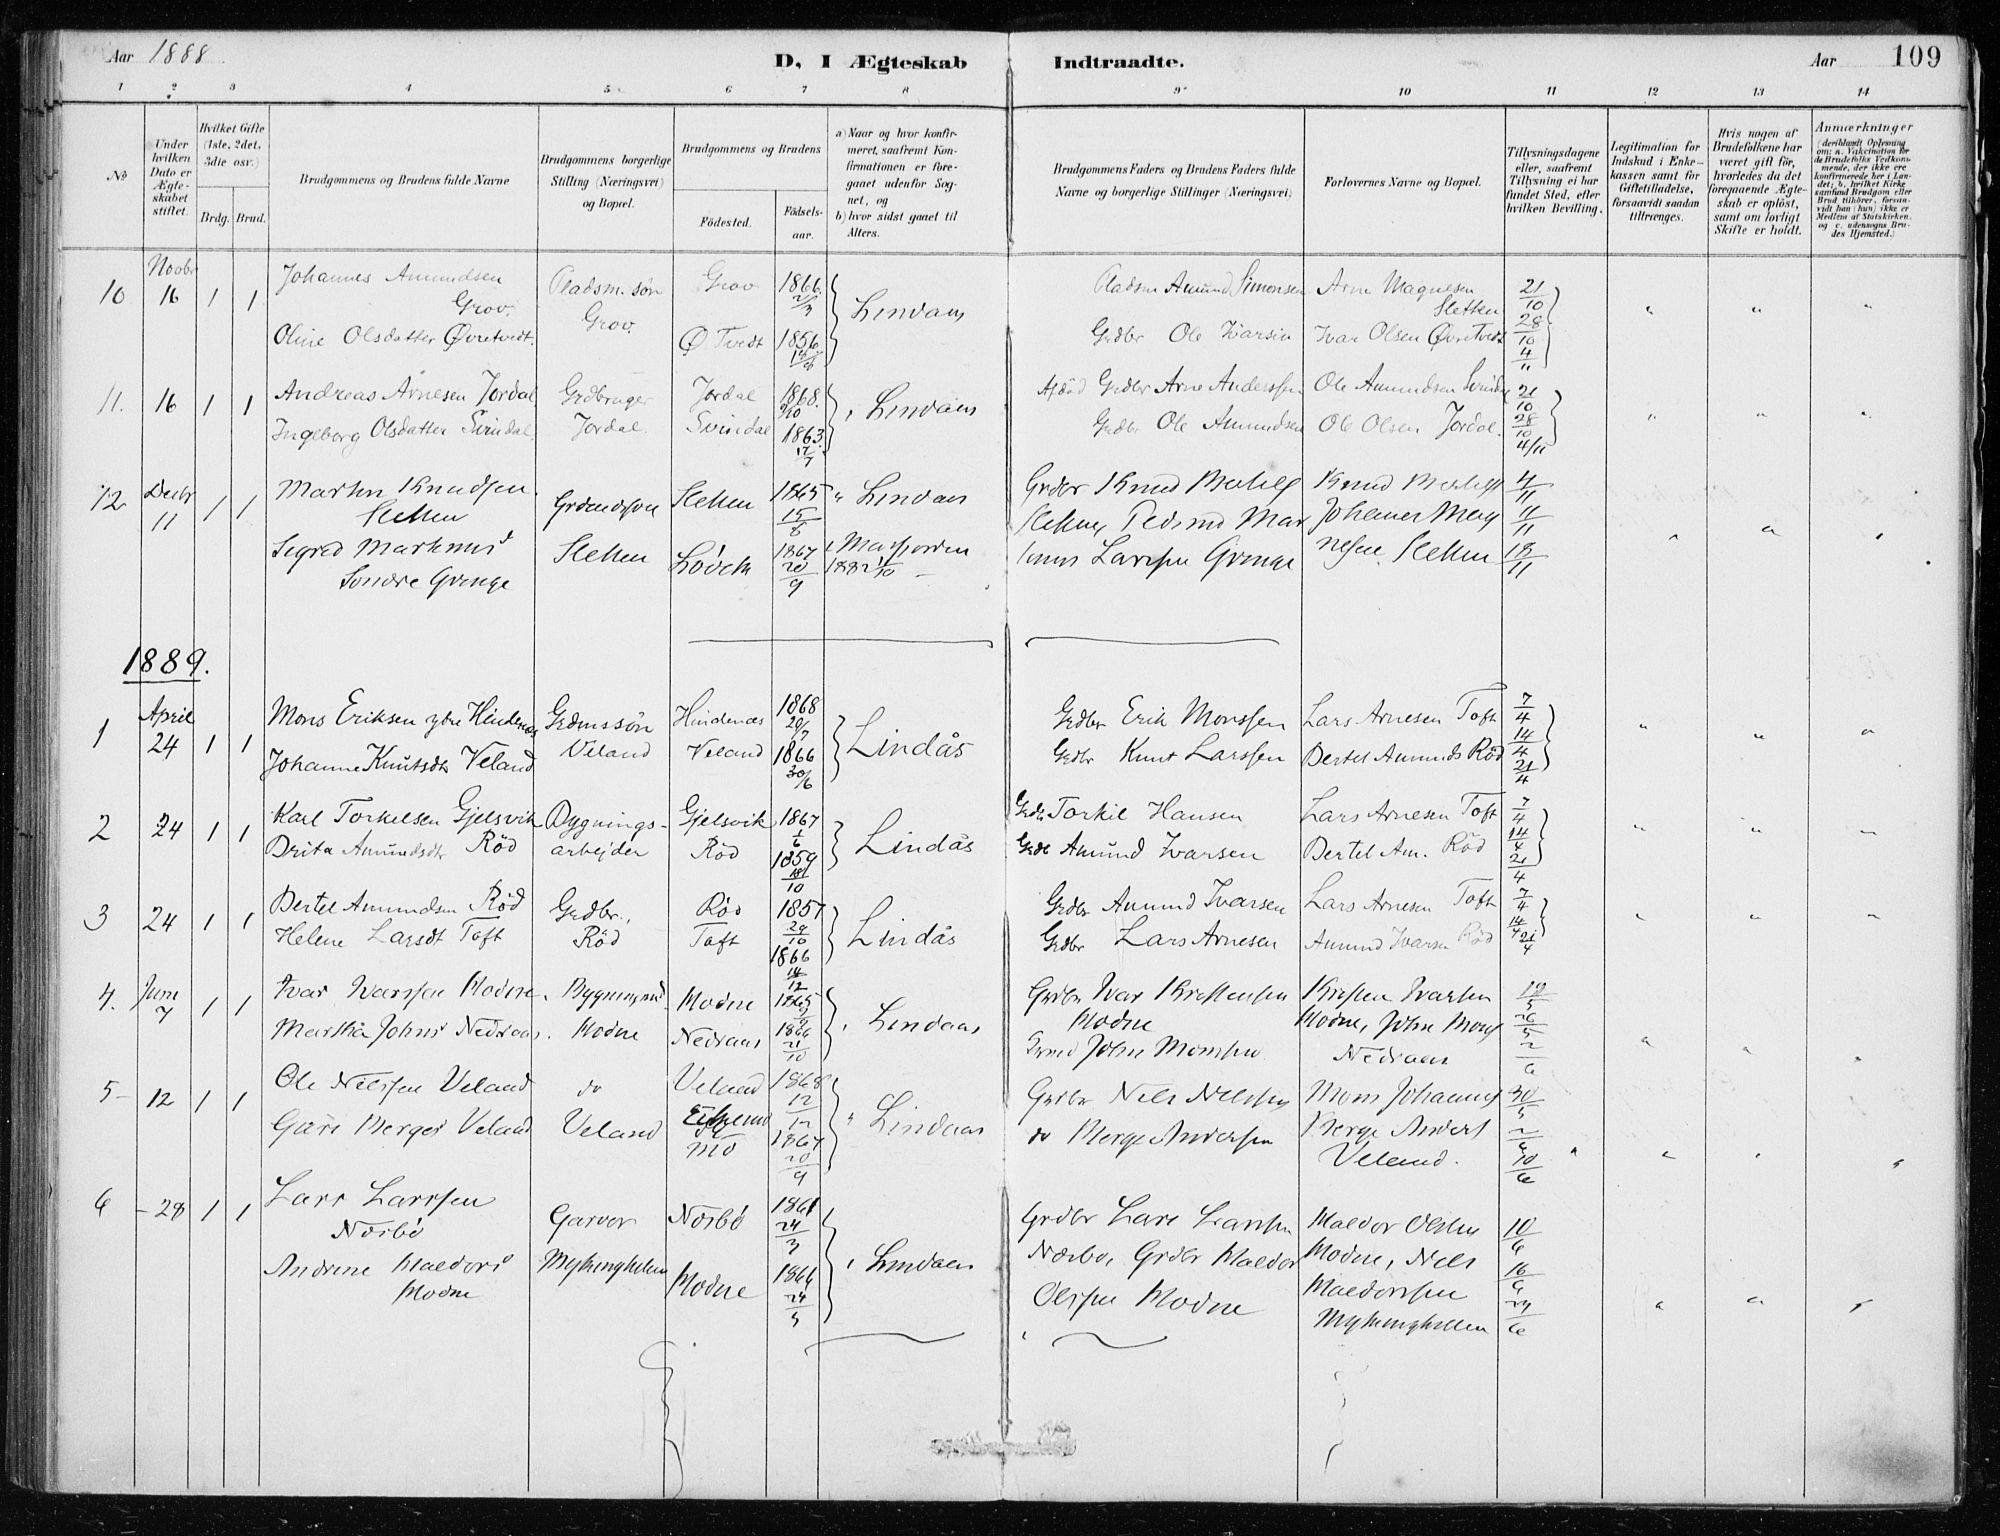 Aar 1888
D, I Ægteskab Indtraadte.
Aar 109
1 2 3 4 5 6 7 8 9 10 11 12 13 14
No
Under hvilken Dato er Ægteskabet stiftet.
Hvilket Gifte (1ste, 2det, 3die osv.)
Brdg. Brud.
Brudgommens og Brudens fulde Navne
Brudgommens borgerlige Stilling (Næringsvei) og Bopæl.
Brudgommens og Brudens
Födested.
Födselsaar.
a) Naar og hvor konfirmeret, saafremt Konfirmationen er foregaaet udenfor Sognet, og
b) hvor sidst gaaet til Alters.
Brudgommens Faders og Brudens Faders fulde Navne og borgerlige Stillinger (Næringsvei)
Forlovernes Navne og Bopæl.
Tillysningsdagene eller, saafremt Tillysning ei har fundet Sted, efter hvilken Bevilling.
Legitimation for Indskud i Enkekassen samt for Giftetilladelse, forsaavidt saadan tiltrænges.
Hvis nogen af Brudefolkene har været gift før, hvorledes da det foregaaende Ægteskab er oplöst, samt om lovligt Skifte er holdt.
Anmærkninger (deriblandt Oplysning om: a. Vakcination for de Brudefolks Vedkommende, der ikke ere konfirmerede her i Landet; b. hvilket Kirkesamfund Brudgom eller Brud tilhörer, forsaavidt han (hun) ikke er Medlem af Statskirken, og c. udensogns Brudes Hjemsted.)
10 Novbr 16 1 1 Johannes Amundsen Grov. Pladsm. søn Grov. Grov 1866 2/3 Lindaas Pladsm Amund Simonsen Arne Magnesen Sletten 21/10
Oline Olsdatter Øvretvedt. Ø Tvedt 1856 Grdbr Ole Ivarsen Ivar Olsen Øvretvedt 28/10 4/11
11. 16 1 1 Andreas Arnesen Jordal Grdbruger Jordal. Jordal 1868. 9/10 Lindaas Afdöd Grdbr Arne Anderssen Ole Amundsen Svindal 21/10
Ingeborg Olsdatter Svindal. Svindal 1863. 17/7 Grdbr Ole Amundsen Ole Olsen Jordal. 28/10 4/11
12 Decbr 11 1 1 Marten Knudsen Sletten Sletten 1865 15/8 " Lindaas Grdbr Knud Knud 4/11
Sigrid Martinus Sondre Gvinge Sletten 1867 20/9 Masfjorden 1882 1/10 Larssen Gvinge Johannes Mag nesen. Sletten 11/11 18/11
1889.
1 April 24 1 1 Mons Eriksen ytre Hindenæs Grdmssön Veland Hindenæs 1868 20/7 Lindås Grdbr Erik Monssen Lars Arnesen Toft 7/4
Johanne Knutsdtr Veland Veland 1866 30/6 Grdbr Knut Larssen Bertel Amunds Röd 14/4 21/4
2 24 1 1 Karl Torkelsen Gjelsvik Bygnings- arbejder Gjelsvik 1867 1/6 Lindås Grdbr Torkil Hansen Lars Arnesen Toft 7/4
Brita Amundsdtr Röd Röd 1859 18/10 Grdbr Amund Ivarsen Bertel Am. Röd 14/4 21/4
3 24 1 1 Bertel Amundsen Röd Grdbr. Röd Röd 1857 29/10 Lindås Grdbr Amund Ivarsen Lars Arnesen Toft 7/4
Helene Larsdt Toft Toft 1866 14/12 Grdbr Lars Arnesen Amund Ivarsen Röd 14/4 21/4
4. Juni 7 1 1 Ivar Ivarssen Modne. Modne Modne 1865 Lindaas Grdbr Ivar Kristensen Modne Kristen Ivarsen Modne, John Mons 19/5
Martha Johns Nedraas. Nedraas 1866 21/10 John Monssen Nedraas 26/5 2/6
5 - 12 1 1 Ole Nilssen Veland do Veland Veland 1868 12/12 " Lindaas Grdbr Nils Nilssen Mons Johannes 30/5
Guri Berges Veland Mo 1867 20/9 do Berge Anderssen Berge Anders Veland. 2/6 10/6
6 - 28 1 1 Lars Larssen Næsbö Garver Næsbö 1861 24/3 Lindaas Grdbr Lars Larssen Næsbö, Grdbr Maldor Olssen Modne Maldor Olssen Modne, Nils Maldorssen Mykinghellen 10/6
Andrine Maldors Modne Mykinghellen Modne 1866 24/5 16/6 24/6